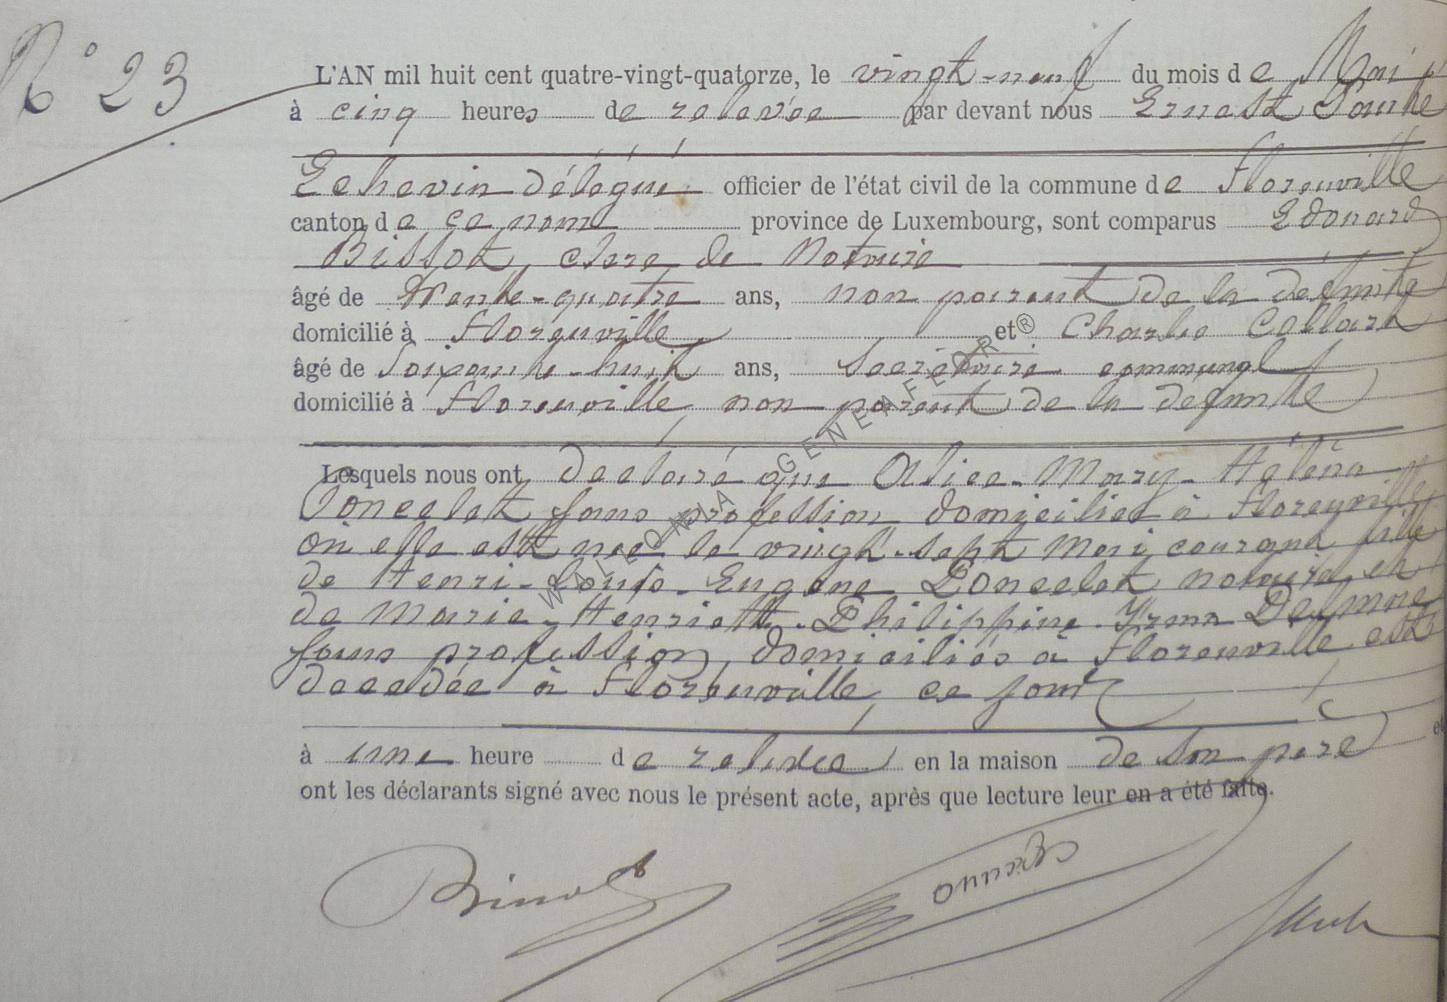 N° 23
L'AN mil huit cent quatre-vingt-quatorze, le vingt-neuf du mois de Mai
à cinq heures de relevée par devant nous Ernest
Echevin délégué officier de l'état civil de la commune de Florenville
canton de ce nom province de Luxembourg, sont comparus Edouard
clerc de Notaire
âgé de trente-quatre ans, non parent de la défunte
domicilié à Florenville et Charles Collard
âgé de Soixante-huit ans, Secrétaire communal
domicilié à Florenville, non parent de la defunte
Lesquels nous ont declaré que Alice-Mary-Helena
Poncelet sans profession domiciliée à Florenville
où elle est née le vingt-sept Mai courant fille
de Henri-Louis-Eugène Poncelet notaire et
de Marie-Henriette-Philippine-Irma
sans profession, domiciliés à Florenville est
decedée à Florenville, ce jour
à une heure de relevée en la maison de son père et
ont les déclarants signé avec nous le présent acte, après que lecture leur en a été faite.
WALLONIA GENEAFER ®